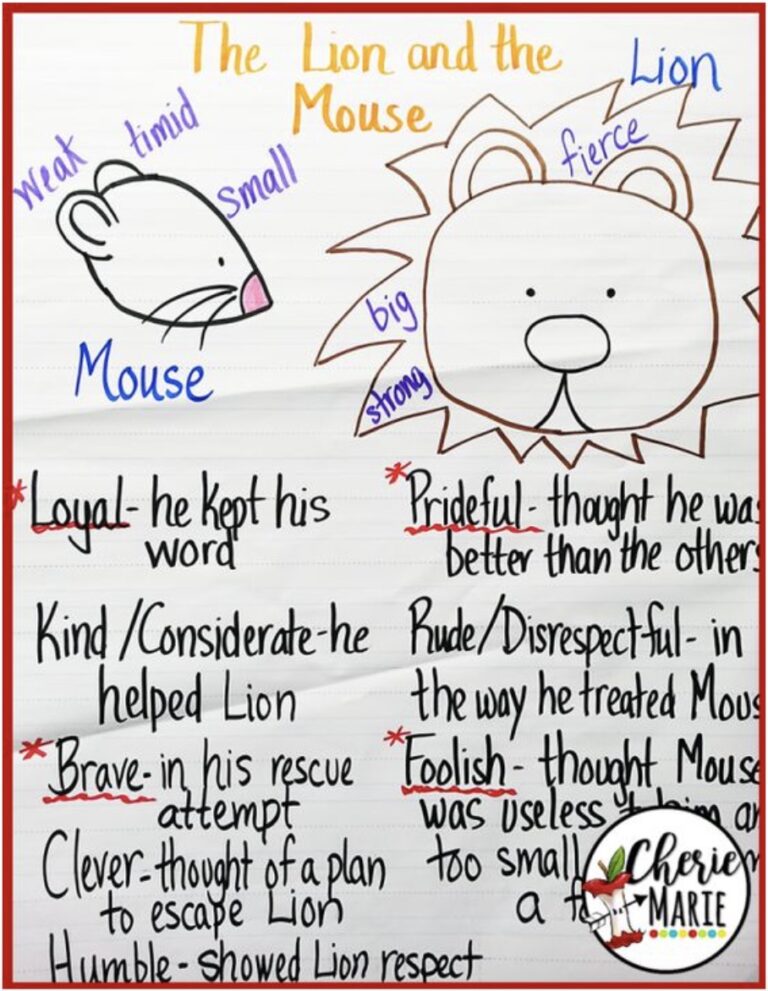 The Lion and the
Mouse
Lion
weak
timid
small
fierce
big
strong
Mouse
*Loyal- he kept his
word
Kind/Considerate-he
helped Lion
*Brave- in his rescue
attempt
Clever- thought of a plan
to escape Lion
Humble- showed Lion respect
*Prideful- thought he was
better than the others
Rude/Disrespectful- in
the way he treated Mous
*Foolish- thought Mouse
was useless
too small
a
Cherie
MARIE